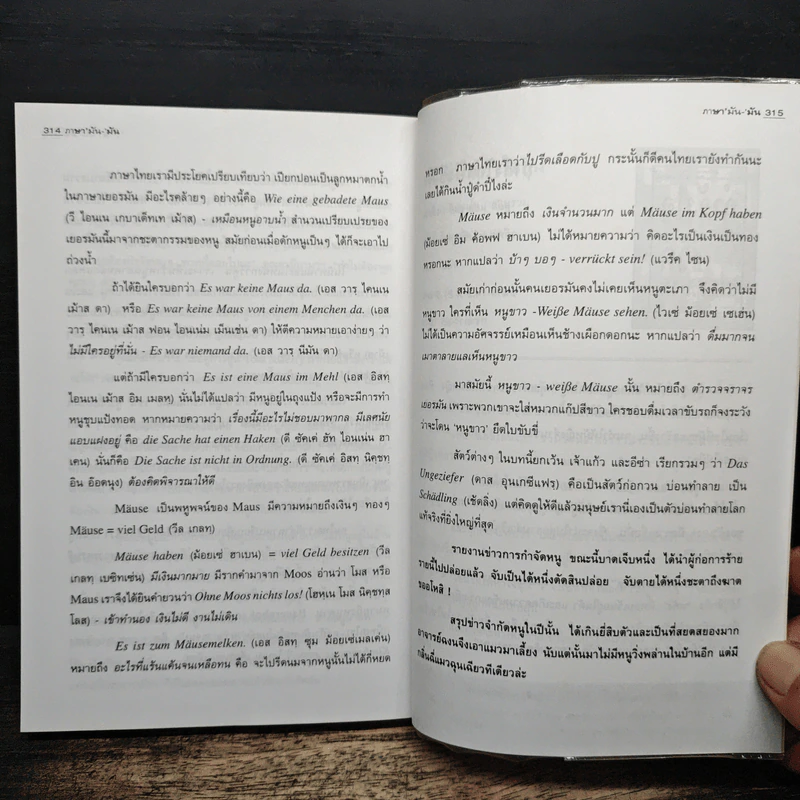 314 ภาษา'มัน-'มัน
ภาษาไทยเรามีประโยคเปรียบเทียบว่า เปียกปอนเป็นลูกหมาตกน้ำ
ในภาษาเยอรมัน มีอะไรคล้ายๆ อย่างนี้คือ Wie eine gebadete Maus
(วี ไอเนเ เกบาเด็ทเท เม้าส) - เหมือนหนูอาบน้ำ สำนวนเปรียบเปรยของ
เยอรมันนี้มาจากชะตากรรมของหนู สมัยก่อนเมื่อดักหนูเป็นๆ ได้ก็จะเอาไป
ถ่วงน้ำ
ถ้าได้ยินใครบอกว่า Es war keine Maus da. (เอส วารฺ ไคนเน
เม้าส ดา) หรือ Es war keine Maus von einem Menchen da. (เอส
วารฺ ไคนเน เม้าส ฟอน ไอนเน่ม เม็นเช่น ดา) ให้ตีความหมายเอาง่ายๆ ว่า
ไม่มีใครอยู่ที่นั่น - Es war niemand da. (เอส วารฺ นีมัน ดา)
แต่ถ้ามีใครบอกว่า Es ist eine Maus im Mehl (เอส อิสทฺ
ไอนเน เม้าส อิม เมลหฺ) นั่นไม่ได้แปลว่า มีหนูอยู่ในถุงแป้ง หรือจะมีการทำ
หนูชุบแป้งทอด หากหมายความว่า เรื่องนี้มีอะไรไม่ชอบมาพากล มีเลศนัย
แอบแฝงอยู่ คือ die Sache hat einen Haken (ดี ซัคเค่ ฮัท ไอนเน่น ฮา
เคน) นั่นก็คือ Die Sache ist nicht in Ordnung. (ดี ซัคเค่ อิสทฺ นิคฺชทฺ
อิน อ๊อดนุง) ต้องคิดพิจารณาให้ดี
Mäuse เป็นพหูพจน์ของ Maus มีความหมายถึงเงินๆ ทองๆ
Mäuse = viel Geld (วีล เกลท)
Mäuse haben (ม้อยเซ่ ฮาเบน) = viel Geld besitzen (วีล
เกลทฺ เบซิทเซ่น) มีเงินมากมาย มีรากคำมาจาก Moos อ่านว่า โมส หรือ
Maus เราจึงได้ยินคำยวนว่า Ohne Moos nichts los! (โฮหฺเน โมส นิคชทฺส
โลส) - เช้าทำนอง เงินไม่ดี งานไม่เดิน
Es ist zum Mäusemelken. (เอส อิสทฺ ซุม ม้อยเซ่เมลเค่น)
หมายถึง อะไรที่แร้นแค้นจนเหลือทน คือ จะไปรีดนมจากหนูนั้นไม่ได้กี่หยด
ภาษา'มัน-'มัน 315
หรอก ภาษาไทยเราว่าไปรีดเลือดกับปู กระนั้นก็ดีคนไทยเรายังทำกันนะ
เลยได้กินน้ำปู๋ดำปี๋ไงล่ะ
Mäuse หมายถึง เงินจำนวนมาก แต่ Mäuse im Kopf haben
(ม้อยเซ่ อิม ค้อพฟ ฮาเบน) ไม่ได้หมายความว่า คิดอะไรเป็นเงินเป็นทอง
หรอกนะ หากแปลว่า บ้าๆ บอๆ - verrückt sein! (แวรึค ไซน)
สมัยเก่าก่อนนั้นคนเยอรมันคงไม่เคยเห็นหนูตะเภา จึงคิดว่าไม่มี
หนูขาว ใครที่เห็น หนูขาว -Weiße Mäuse sehen. (ไวเซ่ ม้อยเซ่ เซเฮ่น)
ไม่ได้เป็นความอัศจรรย์เหมือนเห็นช้างเผือกดอกนะ หากแปลว่า ดื่มมากจน
เมาตาลายแลเห็นหนูขาว
มาสมัยนี้ หนูขาว - weiße Mäuse นั้น หมายถึง ตำรวจจราจร
เยอรมัน เพราะพวกเขาจะใส่หมวกแก๊ปสีขาว ใครชอบดื่มเวลาขับรถก็จงระวัง
ว่าจะโดน 'หนูขาว' ยึดใบขับขี่
สัตว์ต่างๆ ในบทนี้ยกเว้น เจ้าแก้ว และอีซ่า เรียกรวมๆ ว่า Das
Ungeziefer (ดาส อุนเกซีแฟรฺ) คือเป็นสัตว์ก่อกวน บ่อนทำลาย เป็น
Schädling (เช้ดลิ่ง) แต่คิดดูให้ดีแล้วมนุษย์เรานี่เองเป็นตัวบ่อนทำลายโลก
แท้จริงที่ยิ่งใหญ่ที่สุด
รายงานข่าวการกำจัดหนู ขณะนี้บาดเจ็บหนึ่ง ได้นำผู้ก่อการร้าย
รายนี้ไปปล่อยแล้ว จับเป็นได้หนึ่งตัดสินปล่อย จับตายได้หนึ่งชะตาถึงฆาต
ซอลโหลิ !
สรุปข่าวจำกัดหนูในปีนั้น ได้เกินยี่สิบตัวและเป็นที่สยดสยองมาก
อาจารย์ผจงจึงเอาแมวมาเลี้ยง นับแต่นั้นมาไม่มีหนูวิ่งพล่านในบ้านอีก แต่มี
กลิ่นฉี่แมวฉุนเฉียวทีเดียวล่ะ